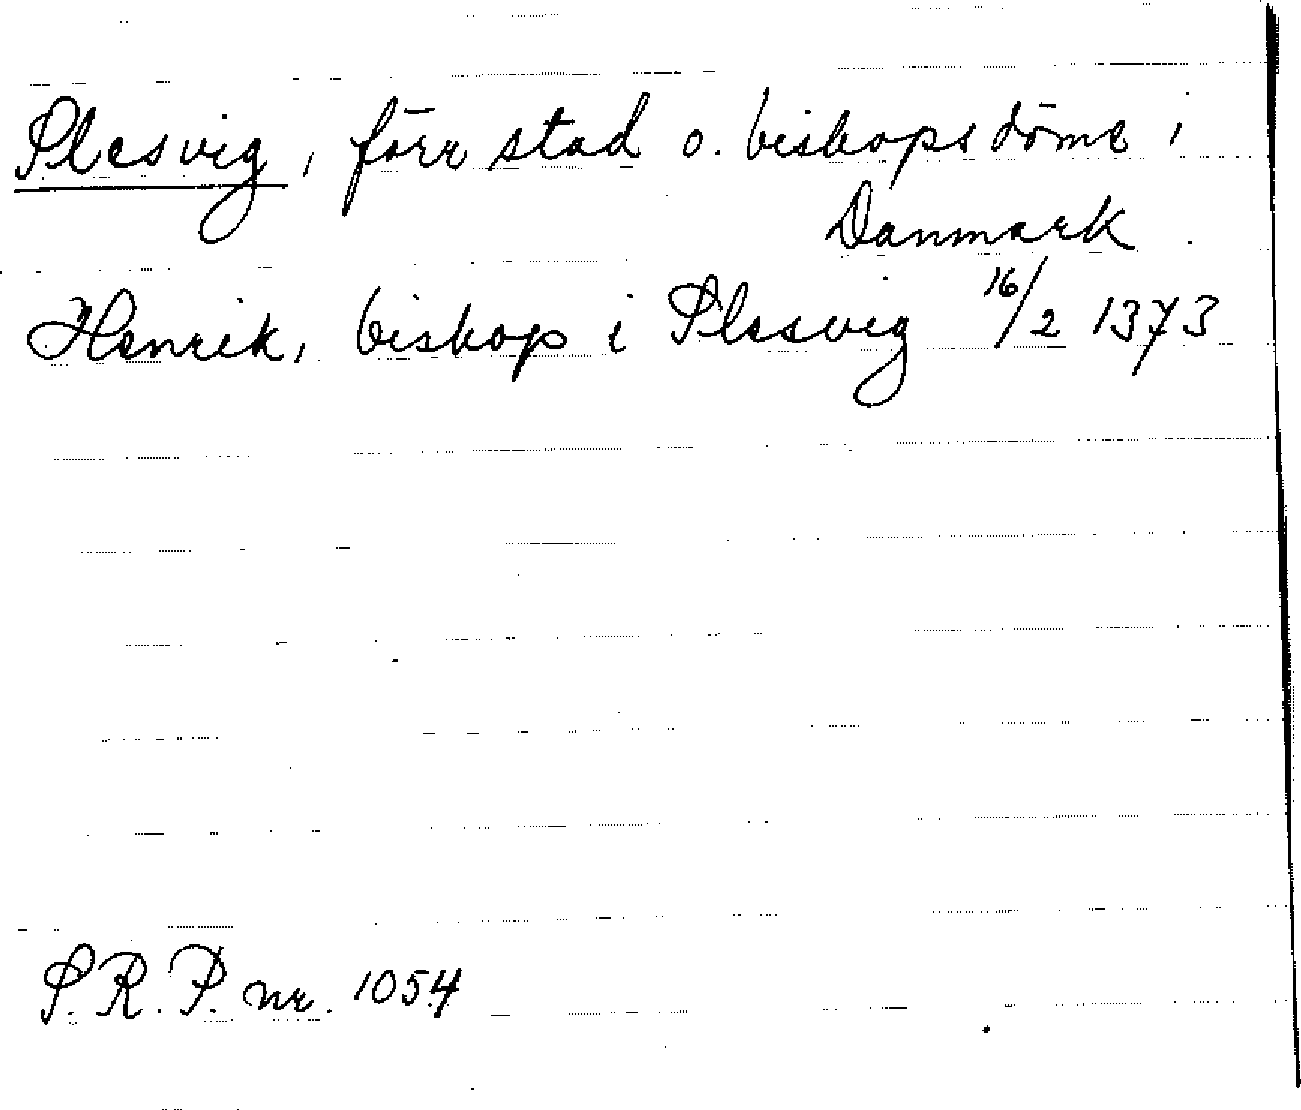 Slesvig, förr stad o. biskopsdöme i
Danmark.
Henrik, biskop i Slesvig 16/2 1373
S.R.P. nr. 1054